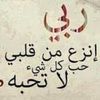 ربي
إنزع من قلبي
حب كل شيء
لا تحبه